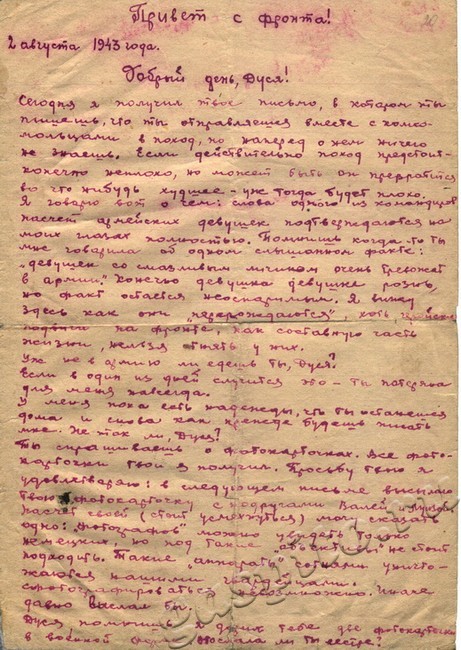 Привет с фронта!
2 августа 1943 года.
Добрый день, Дуся!
Сегодня я получил твое письмо, в котором ты
пишешь, что ты отправляешся вместе с комсо-
мольцами в поход, но наперед о нем ничего
не знаешь. Если действительно поход предстоит-
конечно неплохо, но может быть он превратится
во что нибудь худшее - уже тогда будет плохо.
Я говорю вот о чем: слова одного из командиров
насчет армейских девушек подтверждаются на
моих глазах полностью. Помнишь когда-то ты
мне говорила об одном слышанном факте:
"девушек со смазливым личиком очень тревожат
в армии." Конечно девушка девушке рознь,
но факт остается неоспаримым. Я вижу
здесь как они "перерождаются", хоть
подвиги на фронте, как составную часть
жизни, нельзя отнять у них.
Уж не в армию ли едешь ты, Дуся?
Если в один из дней случится это - ты потеряна
для меня навсегда.
У меня пока есть надежды, что ты останешся
дома и снова как прежде будешь писать
мне. Не так ли, Дуся?
Ты спрашиваешь о фотокарточках. Все фото-
карточки твои я получил. Просьбу твою я
удовлетворяю: в следующем письме высылаю
твою фотокарточку с подругами Валей и
насчет своей (стоит усмехнуться) могу сказать
одно: "фотографов" можно увидеть только
немецких, но под такие "объективы" не стоит
подходить. Такие "аппараты" сотнями уничто-
жаются нашими гвардейцами.
Сфотографироваться невозможно. Иначе
давно выслал бы.
Дуся помнишь я тебе две фотокарточки
в военной ли ты сестре?